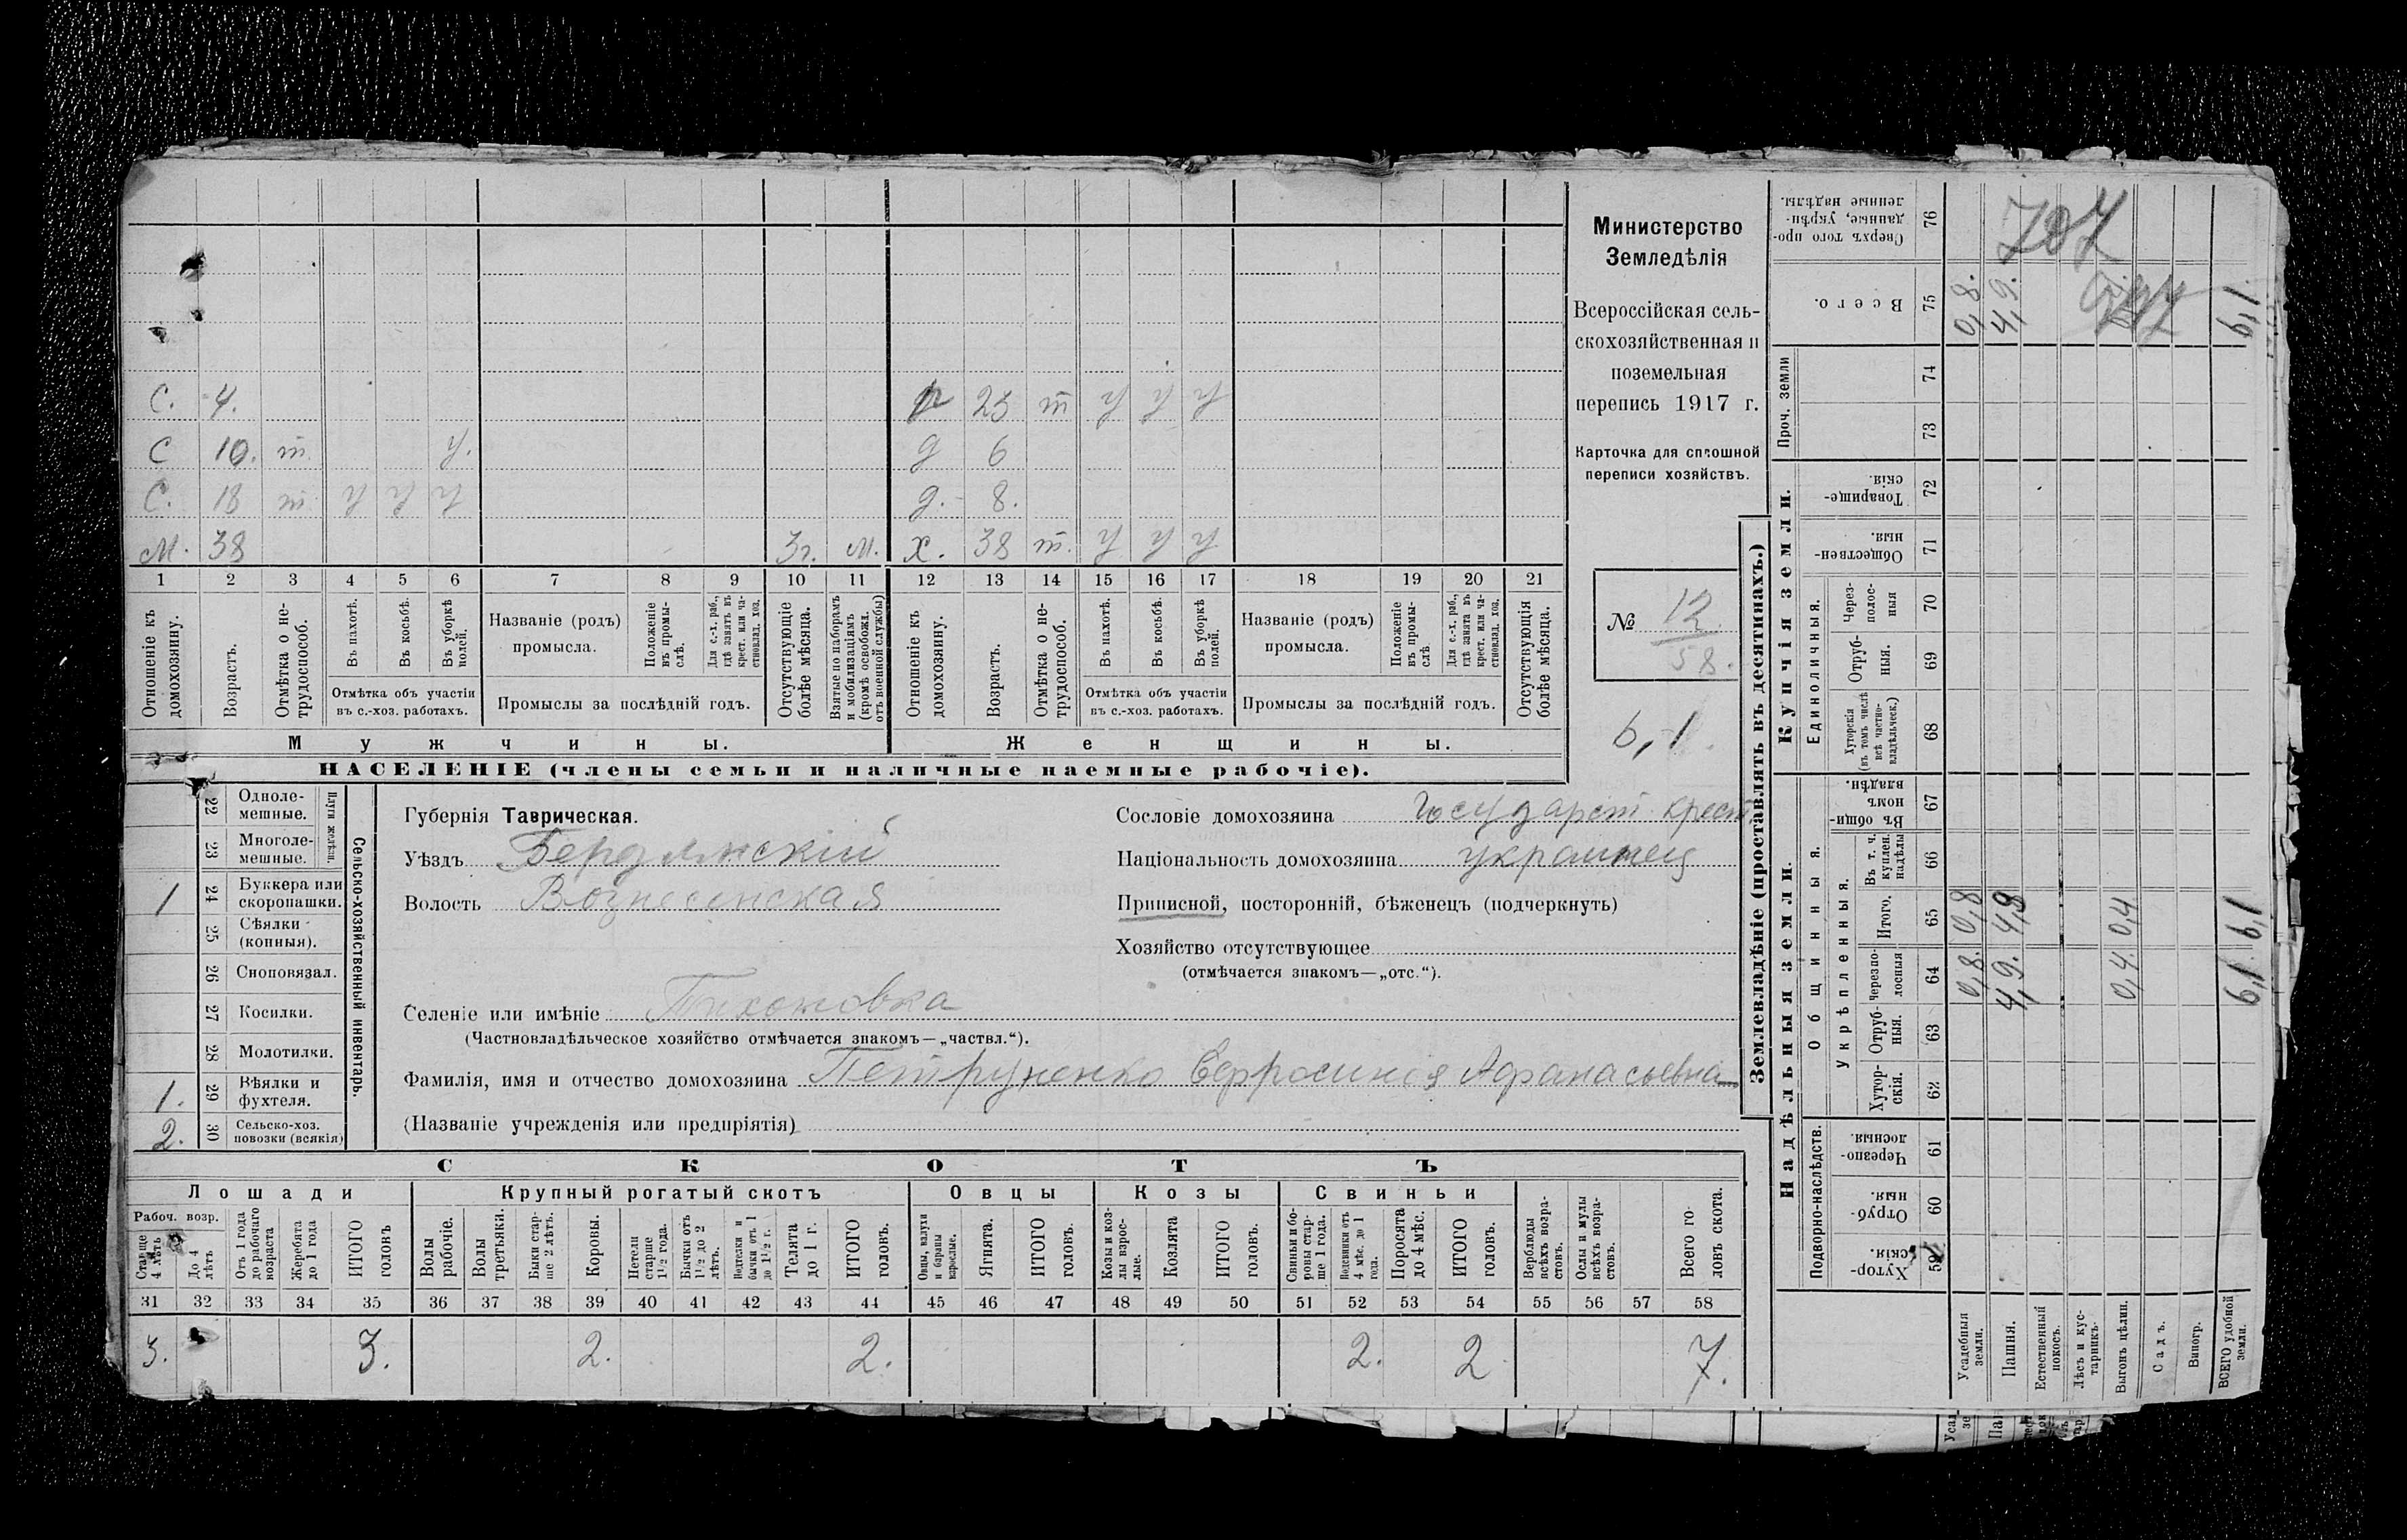 С. 4. р 23 т у у у
С 10. т у. д 6
С. 18 т у у у д. 8.
М. 38 3г. м. х. 38 т. у у у
1 2 3 4 5 6 7 8 9 10 11 12 13 14 15 16 17 18 19 20 21
Отношеніе къ домохозяину.
Возрастъ.
Отмѣтка о не-
трудоспособ.
Въ пахотѣ.
Въ косьбѣ.
Въ уборкѣ
полей.
Отмѣтка объ участіи
въ с.-хоз. работахъ.
Названіе (родъ)
промысла.
Положеніе
въ промы-
слѣ.
Для с.-х. раб.,
гдѣ занятъ въ
крест. или ча-
стновлад. хоз.
Промыслы за послѣдній годъ.
Отсутствующіе
болѣе мѣсяца.
Взятые по наборамъ
и мобилизаціямъ
(кромѣ освобожд.
отъ военной службы)
Отношеніе къ
домохозяину.
Возрастъ.
Отмѣтка о не-
трудоспособ.
Въ пахотѣ.
Въ косьбѣ.
Въ уборкѣ
полей.
Отмѣтка объ участіи
въ с.-хоз. работахъ.
Названіе (родъ)
промысла.
Положеніе
въ промы-
слѣ.
Для с.-х. раб.,
гдѣ занята въ
крест. или ча-
стновлад. хоз.
Промыслы за послѣдній годъ.
Отсутствующія
болѣе мѣсяца.
Мужчины.
Женщины.
НАСЕЛЕНІЕ (члены семьи и наличные наемные рабочіе).
Министерство
Земледѣлія
Всероссійская сель-
скохозяйственная и
поземельная
перепись 1917 г.
Карточка для сплошной
переписи хозяйствъ.
№ 12.
58.
6,1.
22 Одноле-
мешные.
23 Многоле-
мешные.
Плуги желѣзн.
1 24 Буккера или
скоропашки.
25 Сѣялки
(конныя).
26 Сноповязал.
27 Косилки.
28 Молотилки.
1. 29 Вѣялки и
фухтеля.
2. 30 Сельско-хоз.
повозки (всякія)
Сельско-хозяйственный инвентарь.
Губернія Таврическая.
Уѣздъ Бердянскій
Волость Вознесенская
Сословіе домохозяина Государст. крест.
Національность домохозяина украинец
Приписной, посторонній, бѣженецъ (подчеркнуть)
Хозяйство отсутствующее
(отмѣчается знакомъ—„отс.“).
Селеніе или имѣніе Тихоновка
(Частновладѣльческое хозяйство отмѣчается знакомъ—„частвл.“).
Фамилія, имя и отчество домохозяина Петруненко Евфросинія Афанасьевна
(Названіе учрежденія или предпріятія)
СКОТЪ
Лошади
Крупный рогатый скотъ
Овцы
Козы
Свиньи
Рабоч. возр.
Старше
4 лѣтъ
До 4
лѣтъ
Отъ 1 года
до рабочаго
возраста
Жеребята
до 1 года
ИТОГО
головъ
Волы
рабочіе.
Волы
третьяки.
Быки стар-
ше 2 лѣтъ.
Коровы.
Нетели
старше
1½ года.
Бычки отъ
1½ до 2
лѣтъ.
Подтелки и
бычки отъ 1
до 1½ г.
Телята
до 1 г.
ИТОГО
головъ.
Овцы, валухи
и бараны
взрослые.
Ягнята.
ИТОГО
головъ.
Козы и коз-
лы взрос-
лые.
Козлята
ИТОГО
головъ.
Свиньи и бо-
ровы стар-
ше 1 года.
Подсвинки отъ
4 мѣс. до 1
года.
Поросята
до 4 мѣс.
ИТОГО
головъ.
Верблюды
всѣхъ возра-
стовъ.
Ослы и мулы
всѣхъ возра-
стовъ.
Всего го-
ловъ скота.
31 32 33 34 35 36 37 38 39 40 41 42 43 44 45 46 47 48 49 50 51 52 53 54 55 56 57 58
3. 3. 2. 2. 2. 2 7.
Землевладѣніе (проставлять въ десятинахъ.)
Надѣльныя земли.
Купчія земли.
Проч. земли
Подворно-наслѣдств.
Общинныя.
Укрѣпленныя.
Единоличныя.
Хутор-
скія. 59
Отруб-
ныя. 60
Черезпо-
лосныя. 61
Хутор-
скія. 62
Отруб-
ныя. 63
Черезпо-
лосныя 64
Итого. 65
Въ т. ч.
куплен.
надѣлы 66
Въ общи-
номъ
владѣн. 67
Хуторскія
(въ томъ числѣ
всѣ частно-
владѣльческ.) 68
Отруб-
ныя. 69
Через-
полос-
ныя 70
Обществен-
ныя. 71
Товарище-
скія. 72
73
74
Всего. 75
Сверхъ того про-
данные, укрѣп-
ленные надѣлы. 76
Усадебныя
земли. 0,8. 0,8 0,8.
Пашня. 4,9. 4,9 4,9.
Естественный
покосъ.
Лѣсъ и кус-
тарникъ.
Выгонъ цѣлин. 0,4. 0,4
Садъ.
Виногр.
ВСЕГО удобной
земли. 6,1. 6,1 6,1
707